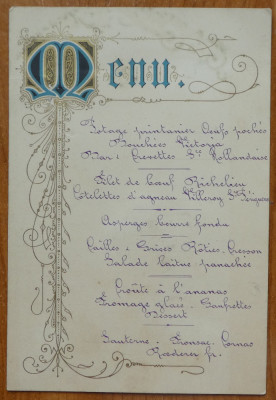 Menu.
Potage printanier Œufs pochés
Bouchées Victoria
Bar : Crevettes Sce Hollandaise
Filet de bœuf Richelieu
Côtelettes d'agneau Villeroy Sce Périgueux
Asperges beurre fondu
Cailles & Grives Rôties. Cresson
Salade laitue panachée
Croûte à l'ananas
Fromage glacé. Gaufrettes
Dessert
Sauterne - Fronsac - Cornas
Rœderer fr.